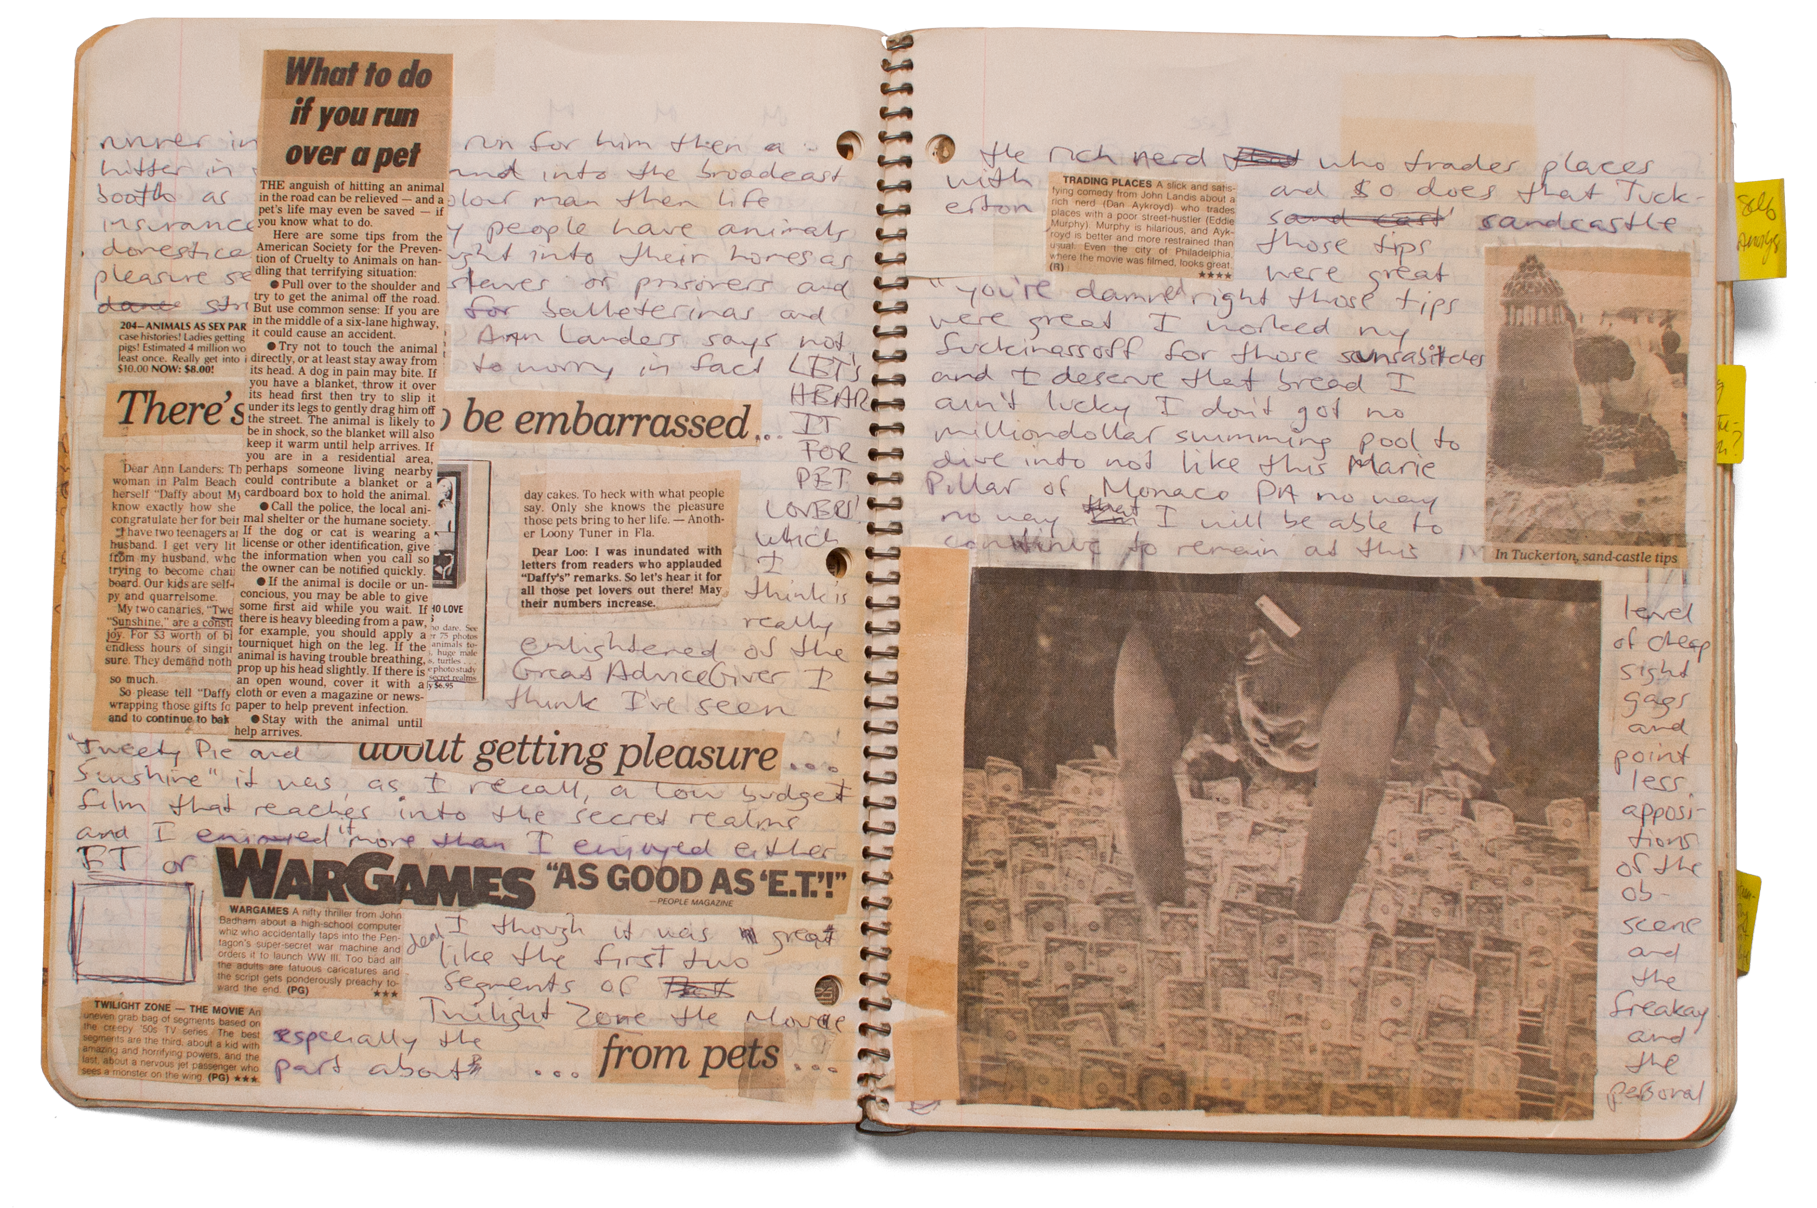 What to do
if you run
over a pet
THE anguish of hitting an animal
in the road can be relieved — and a
pet's life may even be saved — if
you know what to do.
Here are some tips from the
American Society for the Preven-
tion of Cruelty to Animals on han-
dling that terrifying situation:
● Pull over to the shoulder and
try to get the animal off the road.
But use common sense: If you are
in the middle of a six-lane highway,
it could cause an accident.
● Try not to touch the animal
directly, or at least stay away from
its head. A dog in pain may bite. If
you have a blanket, throw it over
its head first then try to slip it
under its legs to gently drag him off
the street. The animal is likely to
be in shock, so the blanket will also
keep it warm until help arrives. If
you are in a residential area,
perhaps someone living nearby
could contribute a blanket or a
cardboard box to hold the animal.
● Call the police, the local ani-
mal shelter or the humane society.
If the dog or cat is wearing a
license or other identification, give
the information when you call so
the owner can be notified quickly.
● If the animal is docile or un-
concious, you may be able to give
some first aid while you wait. If
there is heavy bleeding from a paw,
for example, you should apply a
tourniquet high on the leg. If the
animal is having trouble breathing,
prop up his head slightly. If there is
an open wound, cover it with a
cloth or even a magazine or news-
paper to help prevent infection.
● Stay with the animal until
help arrives.
runner in run for him then a
hitter in into the broadcast
booth as colour man then life
insurance people have animals
domestica into their homes as
pleasure se slaves or prisoners and
for balleterinas and
Ann Landers says not
to worry in fact LET'S
HEAR
IT
FOR
PET
LOVERS!
which
I
think is
really
enlightened of the
Great AdviceGiver I
think I've seen
204—ANIMALS AS SEX PAR
case histories! Ladies getting
pigs! Estimated 4 million wo
least once. Really get into
$10.00 NOW: $8.00!
There's o be embarrassed...
Dear Ann Landers: Th
woman in Palm Beach
herself "Daffy about My
know exactly how she
congratulate her for bein
I have two teenagers a
husband. I get very lit
from my husband, who
trying to become chai
board. Our kids are self-
py and quarrelsome.
My two canaries, "Twe
"Sunshine," are a consta
joy. For $3 worth of bi
endless hours of singi
sure. They demand noth
so much.
So please tell "Daffy
wrapping those gifts fo
and to continue to bak
day cakes. To heck with what people
say. Only she knows the pleasure
those pets bring to her life. — Anoth-
er Loony Tuner in Fla.
Dear Loo: I was inundated with
letters from readers who applauded
"Daffy's" remarks. So let's hear it for
all those pet lovers out there! May
their numbers increase.
HO LOVE
no dare. See
r 75 photos
animals to-
huge male
s, turtles ...
photo study
secret realms
$6.95
about getting pleasure ...
"Tweety Pie and
Sunshine" it was, as I recall, a low budget
film that reaches into the secret realms
and I enjoyed it more than I enjoyed either
ET or
WARGAMES "AS GOOD AS 'E.T.'!"
—PEOPLE MAGAZINE
WARGAMES A nifty thriller from John
Badham about a high-school computer
whiz who accidentally taps into the Pen-
tagon's super-secret war machine and
orders it to launch WW III. Too bad all
the adults are fatuous caricatures and
the script gets ponderously preachy to-
ward the end. (PG) ★★★
I though it was great
deal like the first two
segments of
Twilight Zone the Movie
TWILIGHT ZONE — THE MOVIE An
uneven grab bag of segments based on
the creepy '50s TV series. The best
segments are the third, about a kid with
amazing and horrifying powers, and the
last, about a nervous jet passenger who
sees a monster on the wing. (PG) ★★★
especially the
part about ... from pets ...
the rich nerd who trades places
with and so does that Tuck-
erton sandcastle
those tips
were great
TRADING PLACES A slick and satis-
fying comedy from John Landis about a
rich nerd (Dan Aykroyd) who trades
places with a poor street-hustler (Eddie
Murphy). Murphy is hilarious, and Ayk-
royd is better and more restrained than
usual. Even the city of Philadelphia,
where the movie was filmed, looks great.
(R) ★★★★
"you're damned right those tips
were great I worked my
fuckinassoff for those sunsabitches
and I deserve that bread I
ain't lucky I don't got no
milliondollar swimming pool to
dive into not like this Marie
Pillar of Monaco PA no way
no way that I will be able to
continue to remain at this
In Tuckerton, sand-castle tips
level
of cheap
sight
gags
and
point
less,
apposi-
tions
of the
ob-
scene
and
the
freakay
and
the
personal
Self